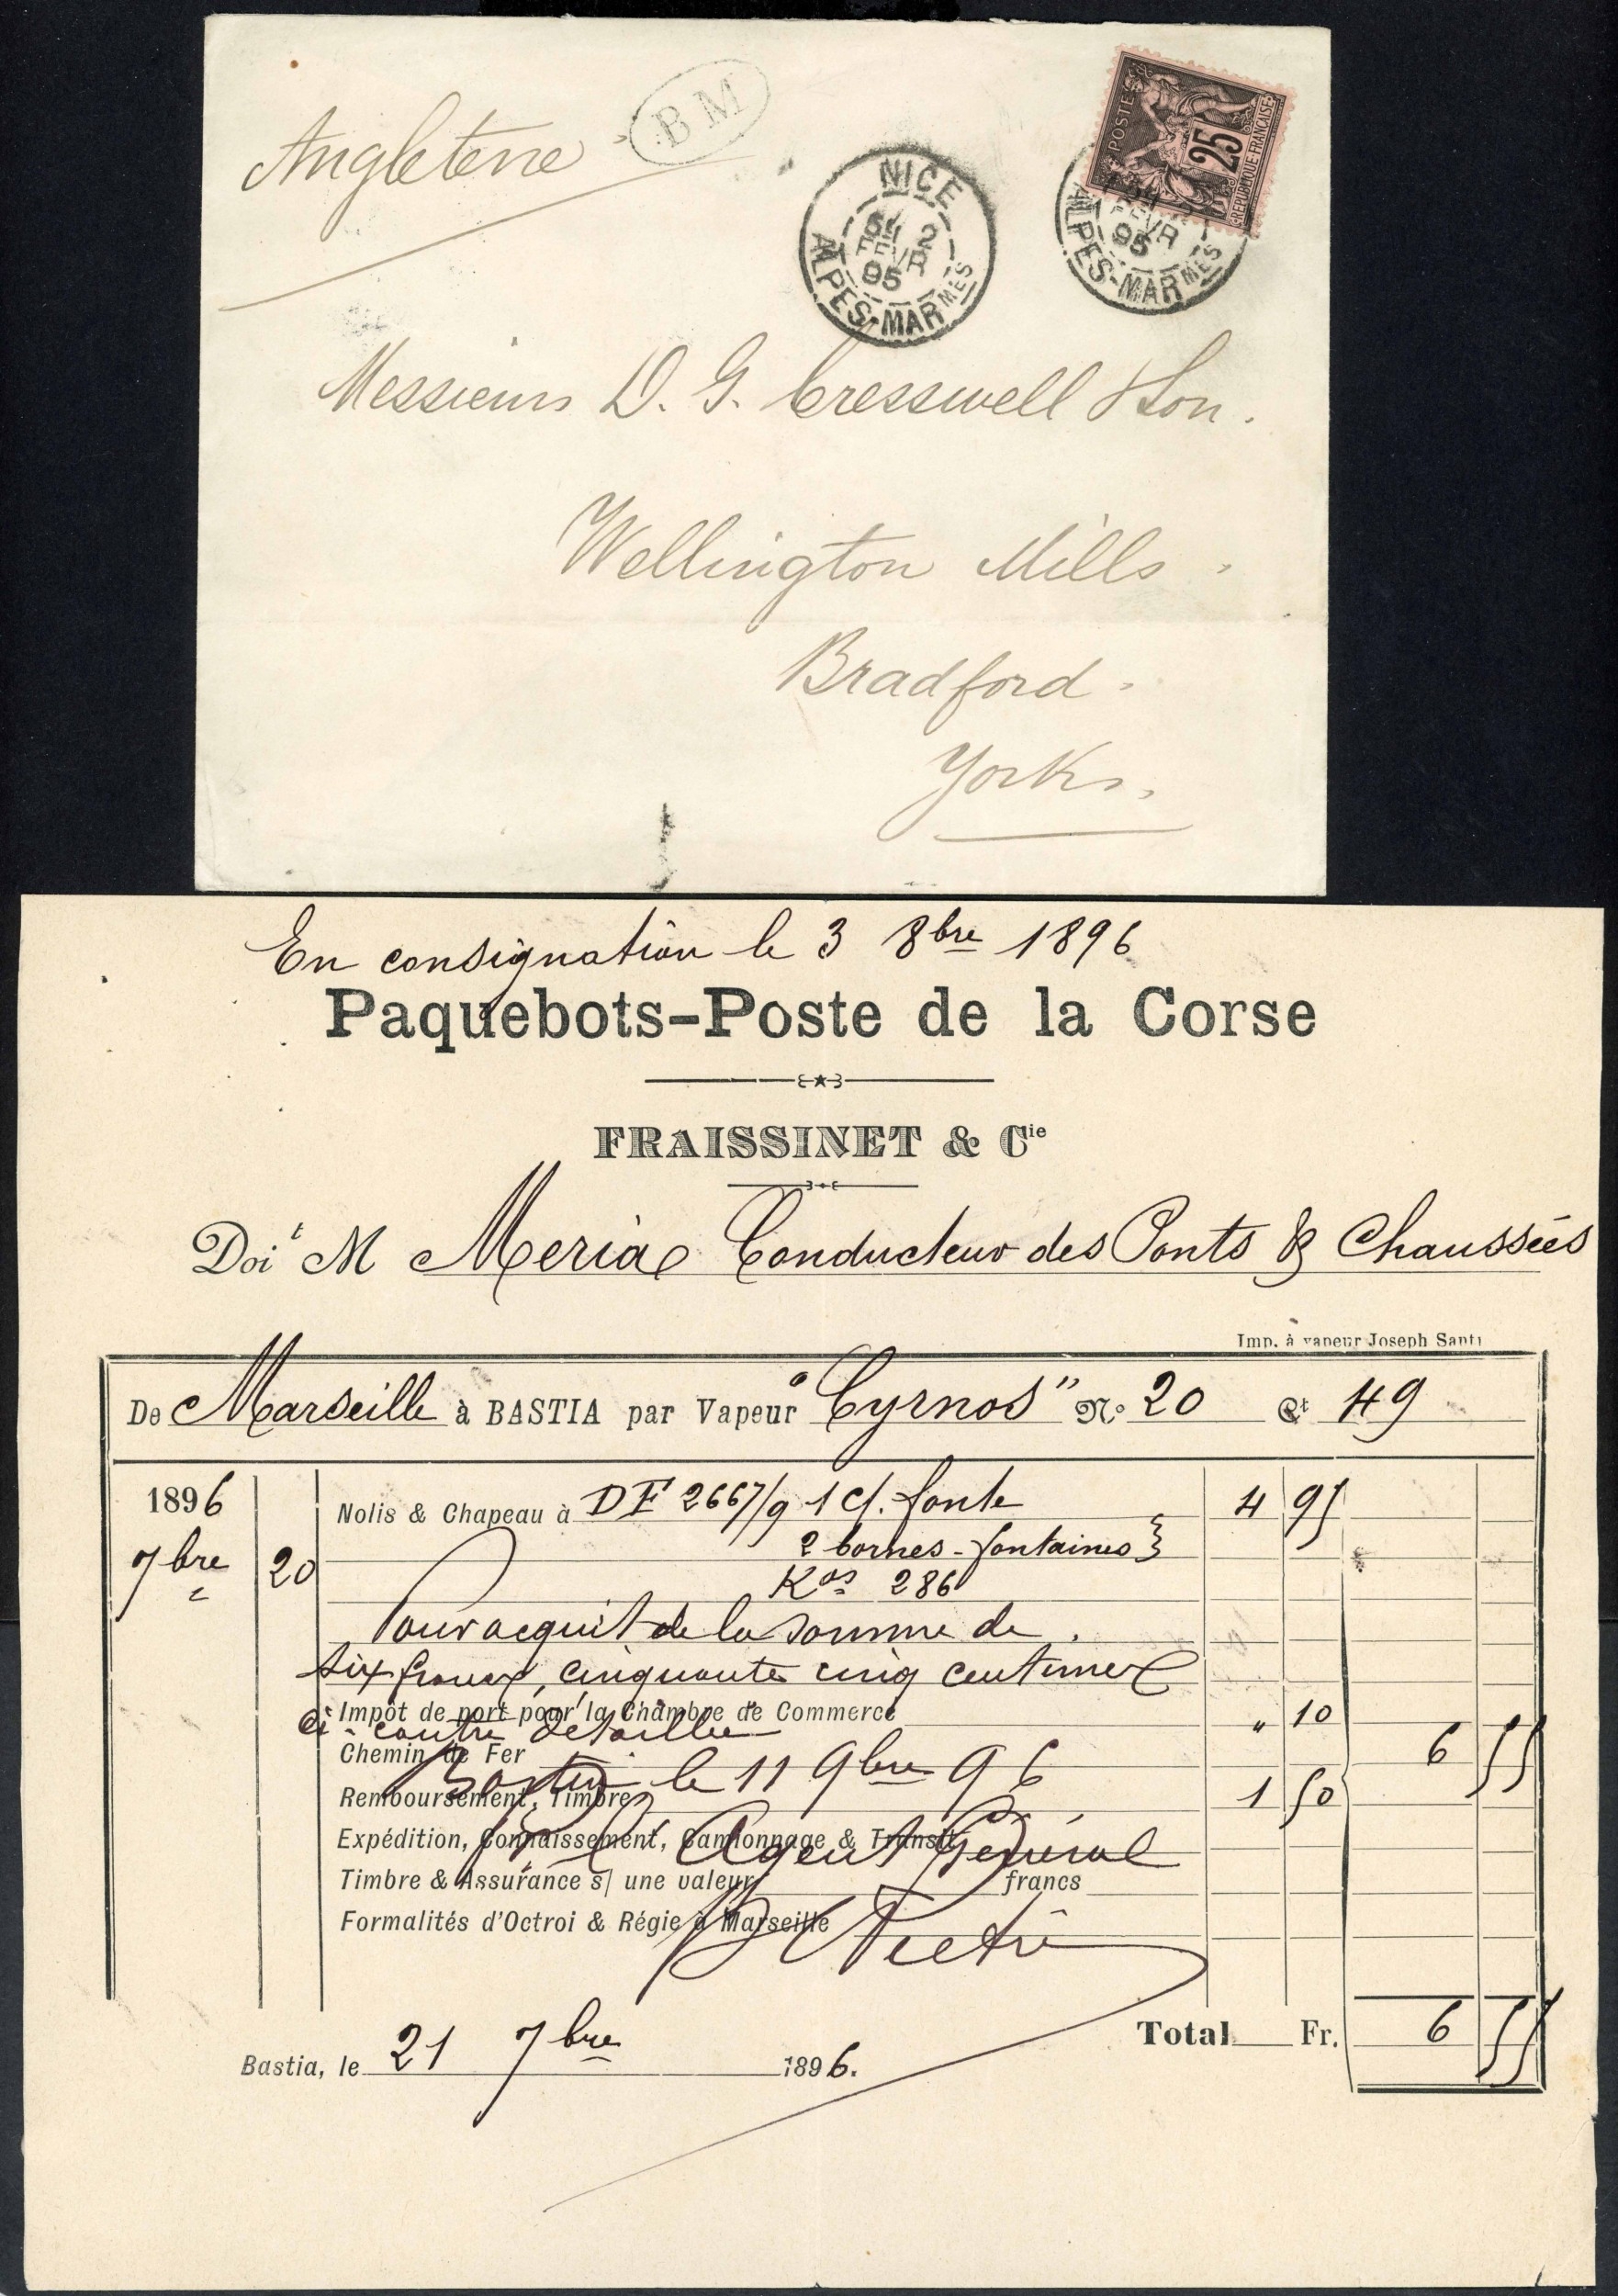 Angleterre
BM
NICE
5E 2
FEVR
95
ALPES-MARMES
POSTES
25
REPUBLIQUE FRANÇAISE
FEVR
95
ALPES-MARMES
Messieurs D. G. Cresswell & Son.
Wellington Mills
Bradford
Yorks.
En consignation le 3 8bre 1896
Paquebots-Poste de la Corse
FRAISSINET & Cie
Doit M Meria Conducteur des Ponts & Chaussées
Imp. à vapeur Joseph Santi
De Marseille à BASTIA par Vapeur "Cyrnos" No 20 Ct 49
1896 Nolis & Chapeau à DF 2667/9 1 c/. fonte 4 95
7bre 20 2 bornes-fontaines }
Kos 286
Pour acquit de la somme de
six francs, cinquante cinq centimes
Impôt de port pour la Chambre de Commerce " 10
ci-contre détaillée
Chemin de Fer 6 55
Bastia le 11 9bre 96
Remboursement, Timbre 1 50
Expédition, Connaissement, Camionnage & Transit
L'Agent Général
Timbre & Assurance s/ une valeur francs
Formalités d'Octroi & Régie à Marseille
Total Fr. 6 55
Bastia, le 21 7bre 1896.